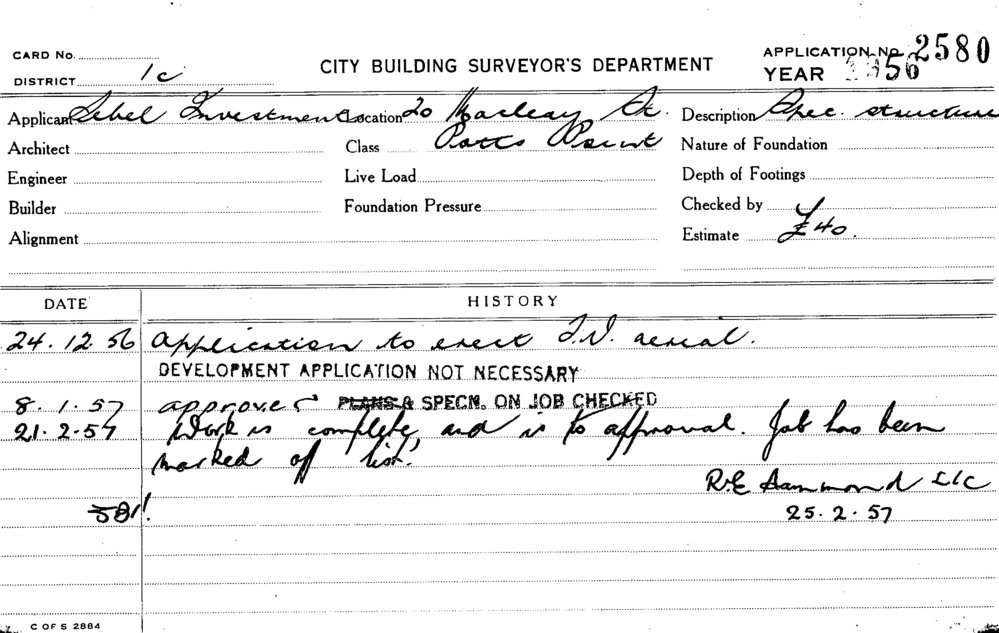 CARD No.
DISTRICT 1c
CITY BUILDING SURVEYOR'S DEPARTMENT
APPLICATION No. 2580
YEAR 1956
Applicant Sebel Investments Location 20 Macleay St. Description Spec. structure
Architect Class Potts Point Nature of Foundation
Engineer Live Load Depth of Footings
Builder Foundation Pressure Checked by
Alignment Estimate £40.
DATE HISTORY
24.12.56 Application to erect T.V. aerial.
DEVELOPMENT APPLICATION NOT NECESSARY
8.1.57 approved PLANS & SPECN. ON JOB CHECKED
21.2.57 Work is complete, and is to approval. Job has been
marked off list.
R.E. Hammond
581! 25.2.57
C OF S 2884